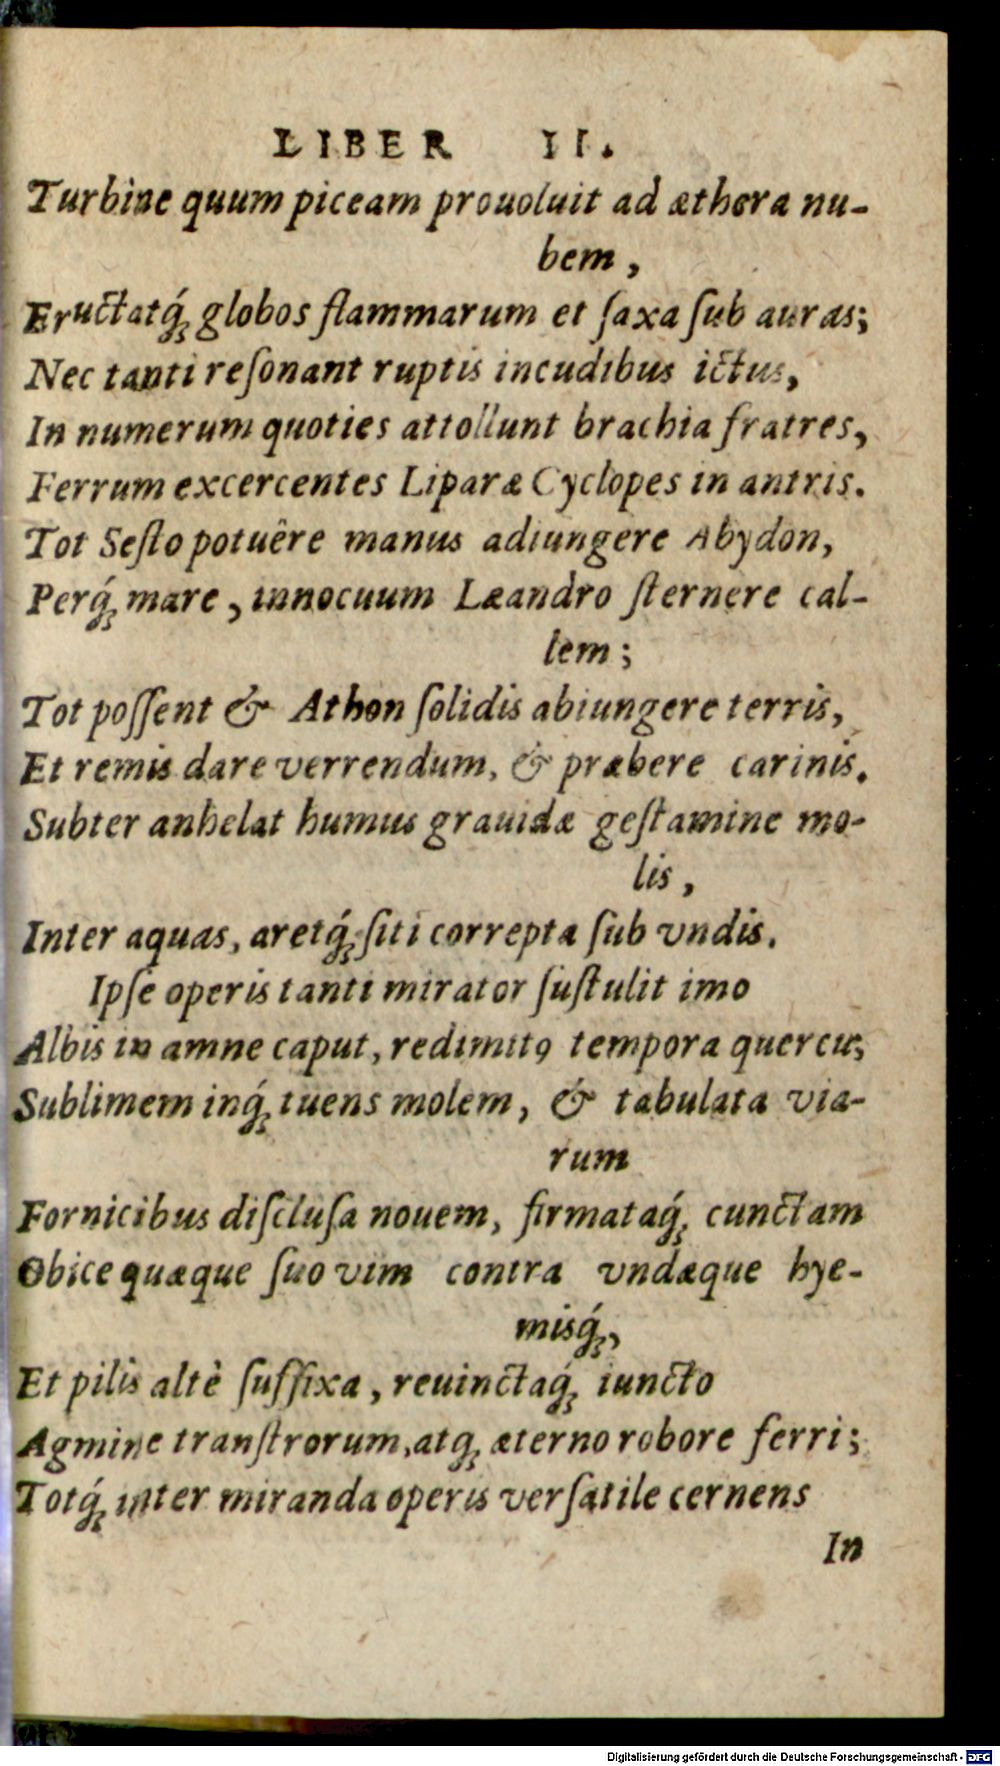 LIBER II.
Turbine quum piceam prouoluit ad æthera nu-
bem,
Eructatq́; globos flammarum et ſaxa ſub auras;
Nec tanti reſonant ruptis incudibus ictus,
In numerum quoties attollunt brachia fratres,
Ferrum excercentes Liparæ Cyclopes in antris.
Tot Seſto potuêre manus adiungere Abydon,
Perq́; mare, innocuum Læandro ſternere cal-
lem;
Tot poſſent & Athon ſolidis abiungere terris,
Et remis dare verrendum, & præbere carinis.
Subter anhelat humus grauidæ geſtamine mo-
lis,
Inter aquas, aretq́; ſiti correpta ſub vndis.
Ipſe operis tanti mirator ſuſtulit imo
Albis in amne caput, redimitꝰ tempora quercu;
Sublimem inq́; tuens molem, & tabulata via-
rum
Fornicibus diſcluſa nouem, firmataq́; cunctam
Obice quæque ſuo vim contra vndæque hye-
misq́;,
Et pilis altè ſuffixa, reuinctaq́; iuncto
Agmine tranſtrorum, atq; æterno robore ferri;
Totq́; inter miranda operis verſatile cernens
In
Digitalisierung gefördert durch die Deutsche Forschungsgemeinschaft - DFG